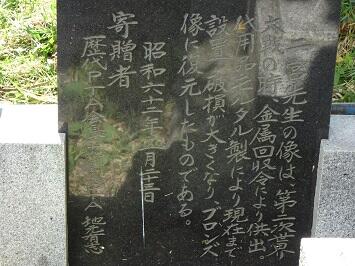 二宮先生の像は、第二次世界
大戦の時、金属回収令により供出。
代用品 タル製により現在まで
設置 破損が大きくなり、ブロンズ
像に復元したものである。
昭和六十二年 月二十三日
寄贈者
歴代PTA会 PTA 有志